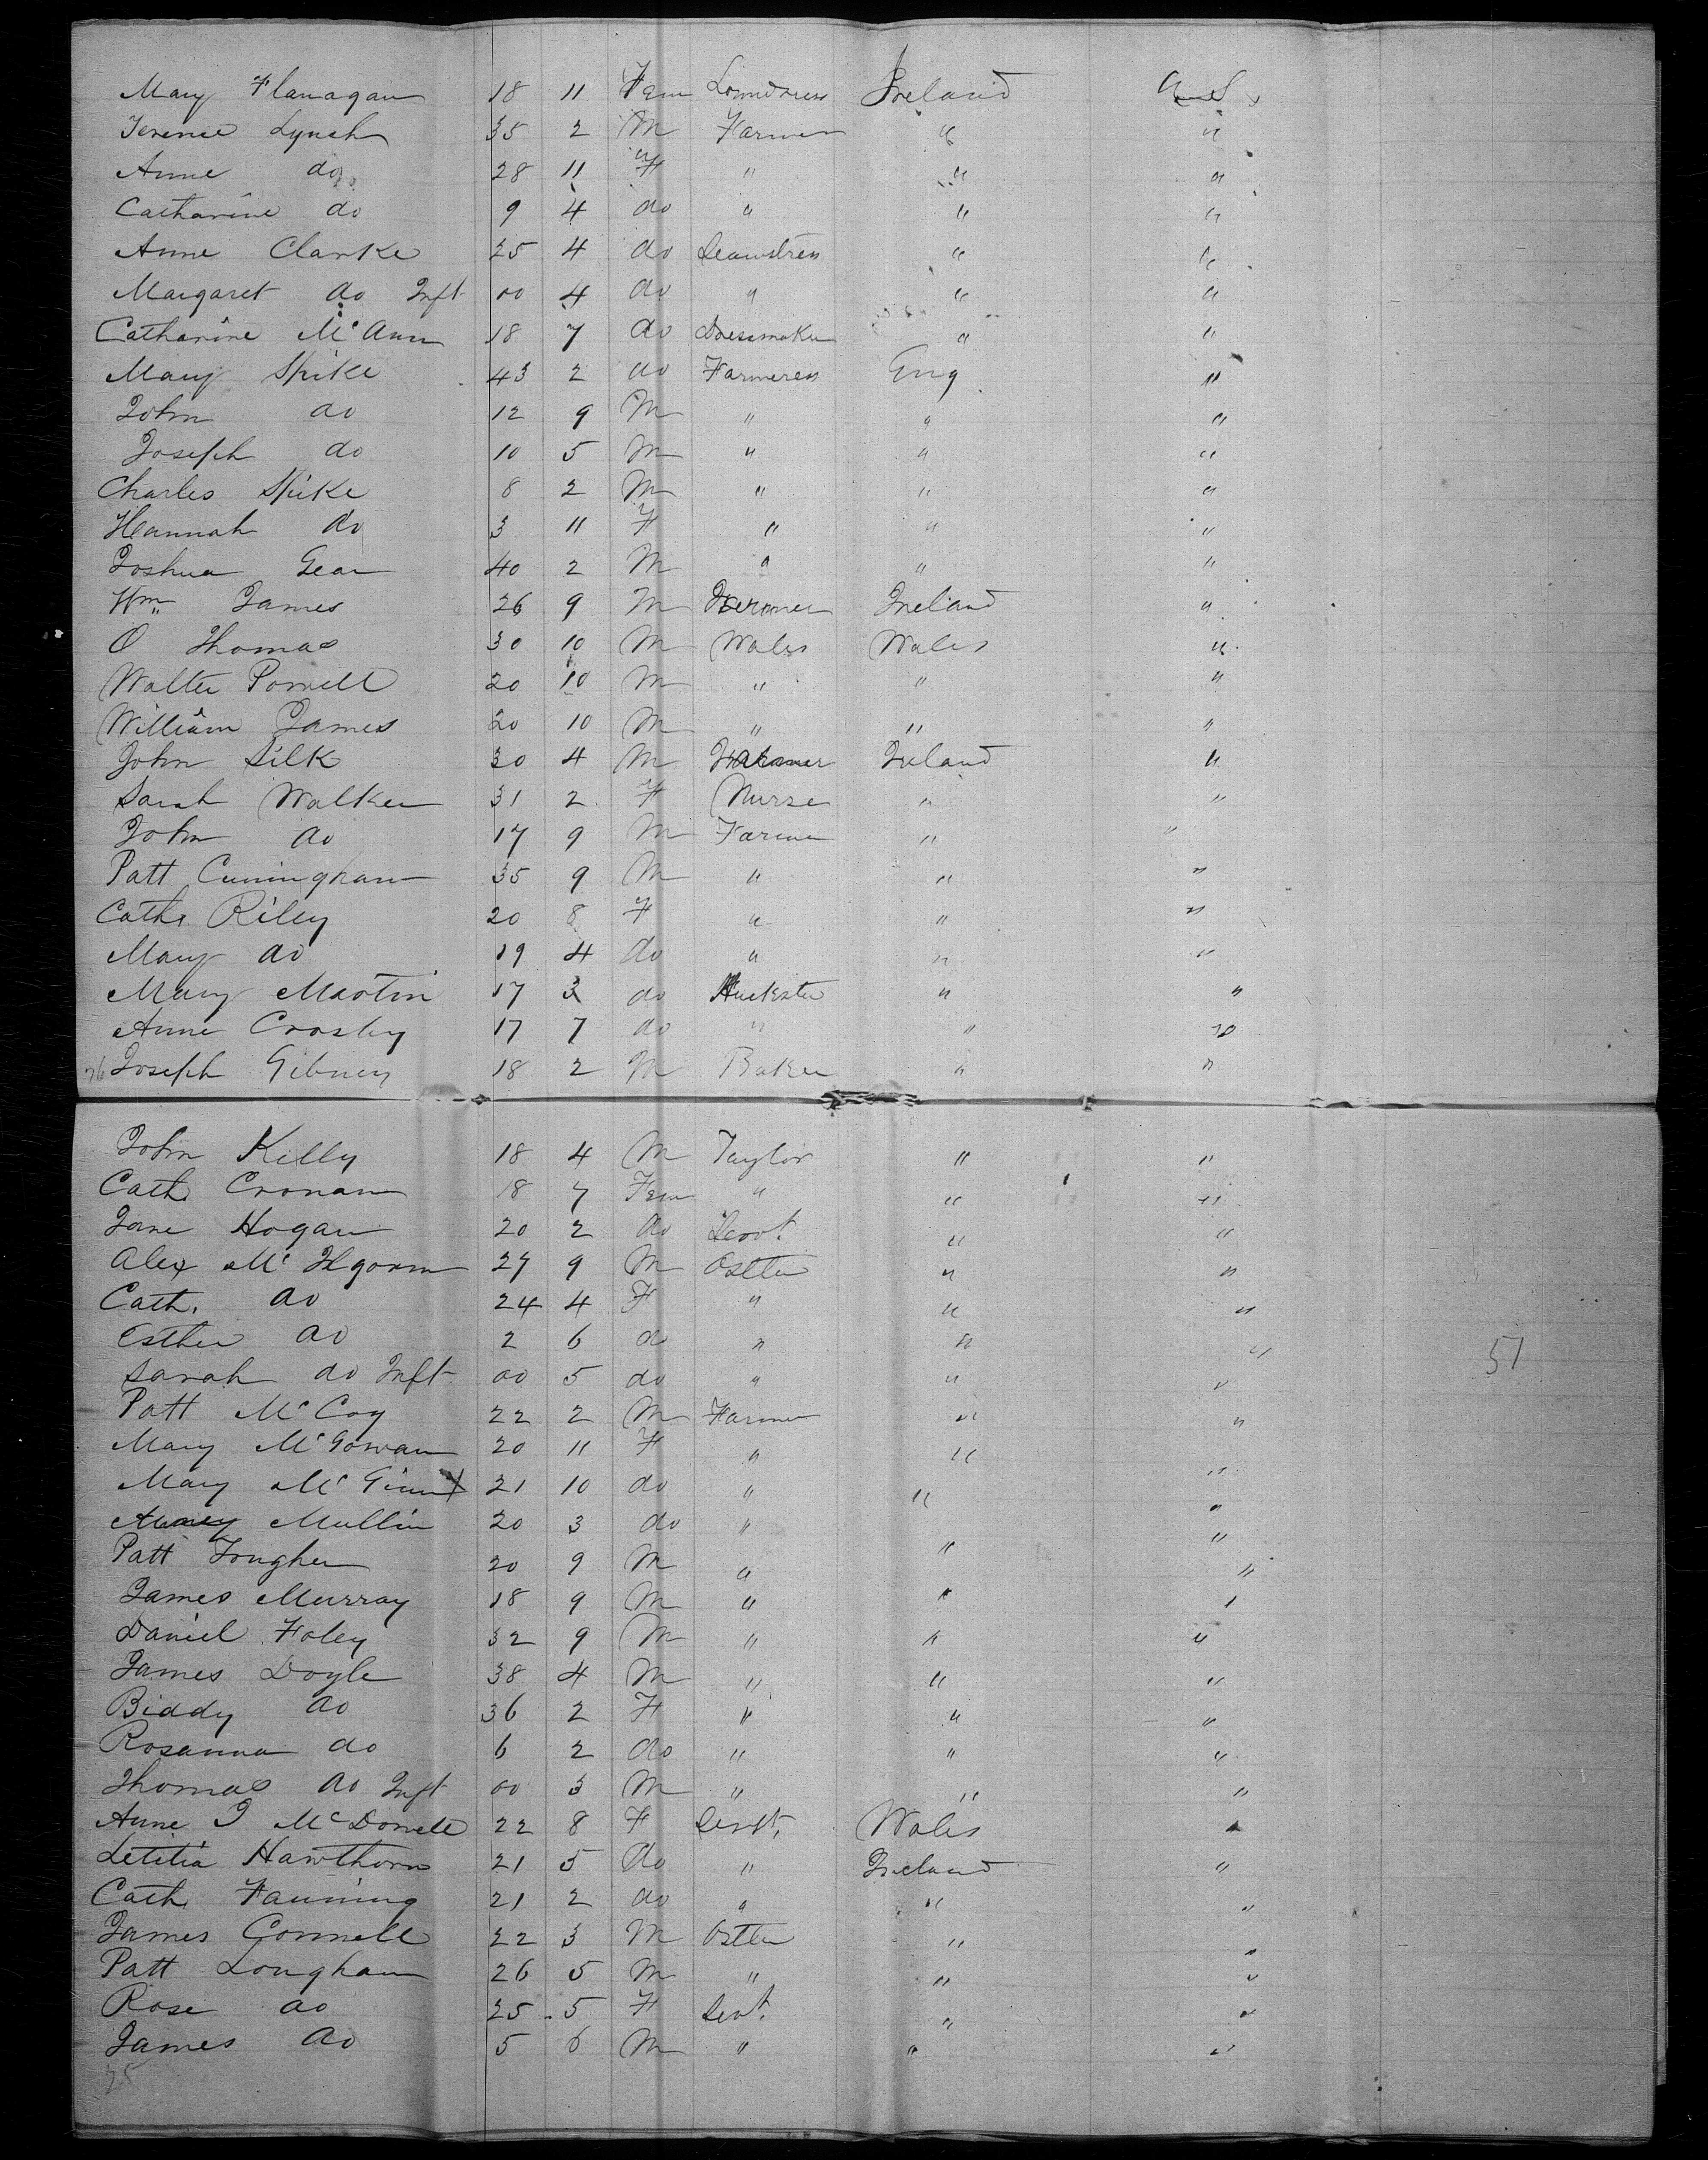 Mary Flanagan 18 11 Fem Loundress Ireland U S
Terence Lynch 35 2 M Farmer " "
Anne do 28 11 F " " "
Catharine do 9 4 do " " "
Anne Clarke 25 4 do Seamstress " "
Margaret do Inft 00 4 do " " "
Catharine McCann 18 7 do Dressmaker " "
Mary Spike 43 2 do Farmeress Eng "
John do 12 9 M " " "
Joseph do 10 5 M " " "
Charles Spike 8 2 M " " "
Hannah do 3 11 F " " "
Joshua Gear 40 2 M " " "
Wm James 26 9 M Farmer Ireland "
O Thomas 30 10 M Wales Wales "
Walter Powell 20 10 M " " "
William James 20 10 M " " "
John Silk 30 4 M Farmer Ireland "
Sarah Walker 31 2 F Nurse " "
John do 17 9 M Farmer " "
Patt Cuningham 35 9 M " " "
Cath. Riley 20 8 F " " "
Mary do 19 4 do " " "
Mary Martin 17 3 do Huckster " "
Anne Crosby 17 7 do " " "
26 Joseph Gibney 18 2 M Baker " "
John Kelly 18 4 M Taylor " "
Cath. Cronan 18 7 Fem " " "
Jane Hogan 20 2 do Servt. " "
Alex Mc 27 9 M Ostler " "
Cath. do 24 4 F " " "
Esther do 2 6 do " " "
Sarah do Inft 00 5 do " " "
51
Patt McCoy 22 2 M Farmer " "
Mary McGowan 20 11 F " " "
Mary McGinn 21 10 do " " "
Mullin 20 3 do " " "
Patt Tougher 20 9 M " " "
James Murray 18 9 M " " "
Daniel Foley 32 9 M " " "
James Doyle 38 4 M " " "
Biddy do 36 2 F " " "
Rosanna do 6 2 do " " "
Thomas do Inft 00 3 M " " "
Anne J McDowell 22 8 F Servt. Wales "
Letitia Hawthorn 21 5 do " Ireland "
Cath. Fanning 21 2 do " " "
James Connell 22 3 M Ostler " "
Patt Longhan 26 5 M " " "
Rose do 25 5 F Servt. " "
James do 5 6 M " " "
25